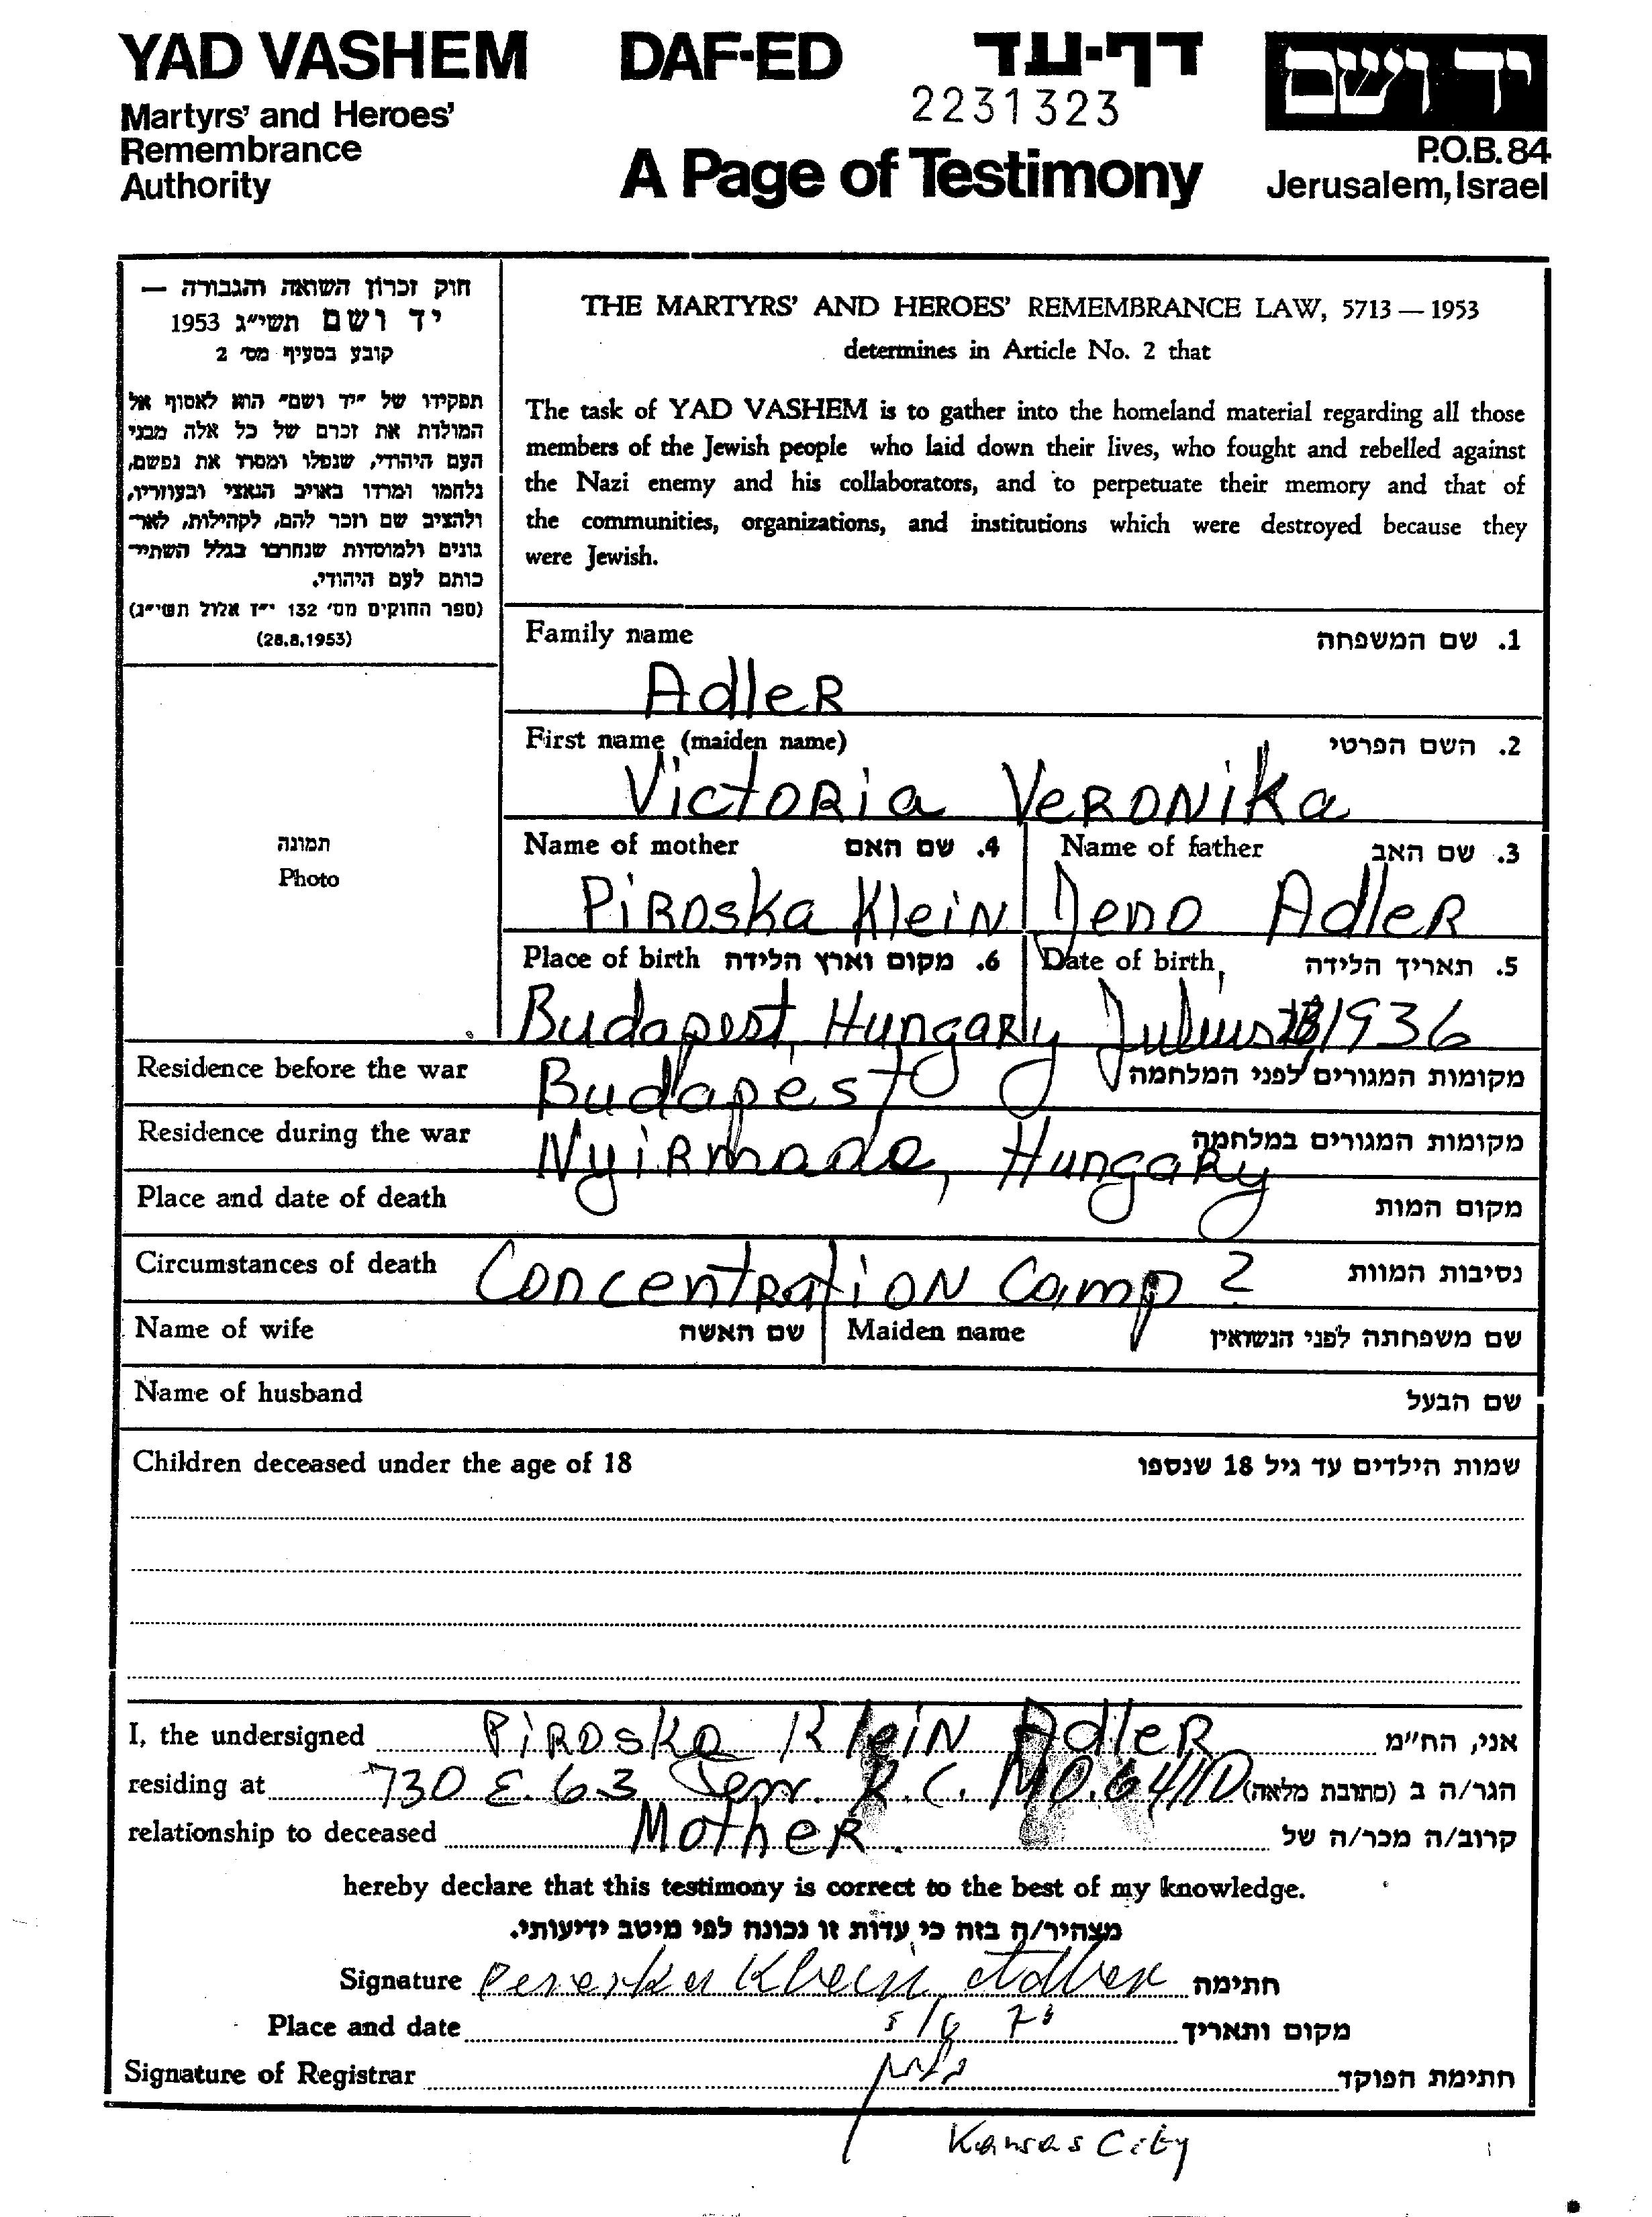 YAD VASHEM DAF-ED דף-עד יד ושם
Martyrs' and Heroes' Remembrance Authority
2231323
A Page of Testimony
P.O.B. 84
Jerusalem, Israel
חוק זכרון השואה והגבורה —
יד ושם תשי"ג 1953
קובע בסעיף מס' 2
תפקידו של "יד ושם" הוא לאסוף אל
המולדת את זכרם של כל אלה מבני
העם היהודי, שנפלו ומסרו את נפשם,
נלחמו ומרדו באויב הנאצי ובעוזריו,
ולהציב שם וזכר להם, לקהילות, לאר־
גונים ולמוסדות שנחרבו בגלל השתיי־
כותם לעם היהודי.
(ספר החוקים מס' 132 י"ז אלול תשי"ג)
(28.8.1953)
תמונה
Photo
THE MARTYRS' AND HEROES' REMEMBRANCE LAW, 5713 — 1953
determines in Article No. 2 that
The task of YAD VASHEM is to gather into the homeland material regarding all those
members of the Jewish people who laid down their lives, who fought and rebelled against
the Nazi enemy and his collaborators, and to perpetuate their memory and that of
the communities, organizations, and institutions which were destroyed because they
were Jewish.
Family name 1. שם המשפחה
AdleR
First name (maiden name) 2. השם הפרטי
VictoRia VeRONika
Name of mother 4. שם האם Name of father 3. שם האב
PiRoska KleiN Jeno AdleR
Place of birth 6. מקום וארץ הלידה Date of birth 5. תאריך הלידה
Budapest, HungaRy Julius 1936
Residence before the war Budapest מקומות המגורים לפני המלחמה
Residence during the war NyiRmada, HungaRy מקומות המגורים במלחמה
Place and date of death מקום המות
Circumstances of death ConcentRatiON Camp ? נסיבות המוות
Name of wife שם האשה Maiden name שם משפחתה לפני הנשואין
Name of husband שם הבעל
Children deceased under the age of 18 שמות הילדים עד גיל 18 שנספו
I, the undersigned PiRoska KleiN AdleR אני, הח"מ
residing at 730 E. 63 Terr. K.C. MO. 64110 הגר/ה ב (כתובת מלאה)
relationship to deceased MotheR. קרוב/ה מכר/ה של
hereby declare that this testimony is correct to the best of my knowledge.
מצהיר/ה בזה כי עדות זו נכונה לפי מיטב ידיעותי.
Signature Piroska Klein Adler חתימה
Place and date מקום ותאריך
Signature of Registrar חתימת הפוקד
Kansas City